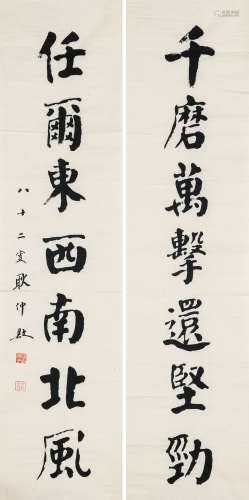 千磨萬擊還堅勁
任爾東西南北風
八十二叟耿仲敭